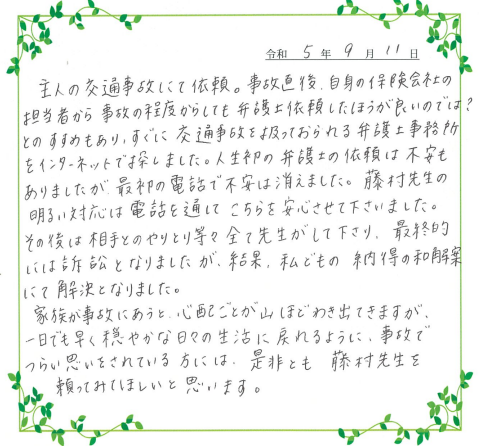 令和 5 年 9 月 11 日
主人の交通事故にて依頼。事故直後、自身の保険会社の
担当者から事故の程度からしても弁護士依頼したほうが良いのでは?
とのすすめもあり、すぐに交通事故を扱っておられる弁護士事務所
をインターネットで探しました。人生初の弁護士の依頼は不安も
ありましたが最初の電話で不安は消えました。藤村先生の
明るい対応は電話を通してこちらを安心させて下さいました。
その後は相手とのやりとり等々全て先生がして下さり、最終的
には訴訟となりましたが、結果、私どもの納得の和解案
にて解決となりました。
家族が事故にあうと、心配ごとが山ほどわき出てきますが、
一日でも早く穏やかな日々の生活に戻れるように、事故で
つらい思いをされている方には、是非とも藤村先生を
頼ってみてほしいと思います。